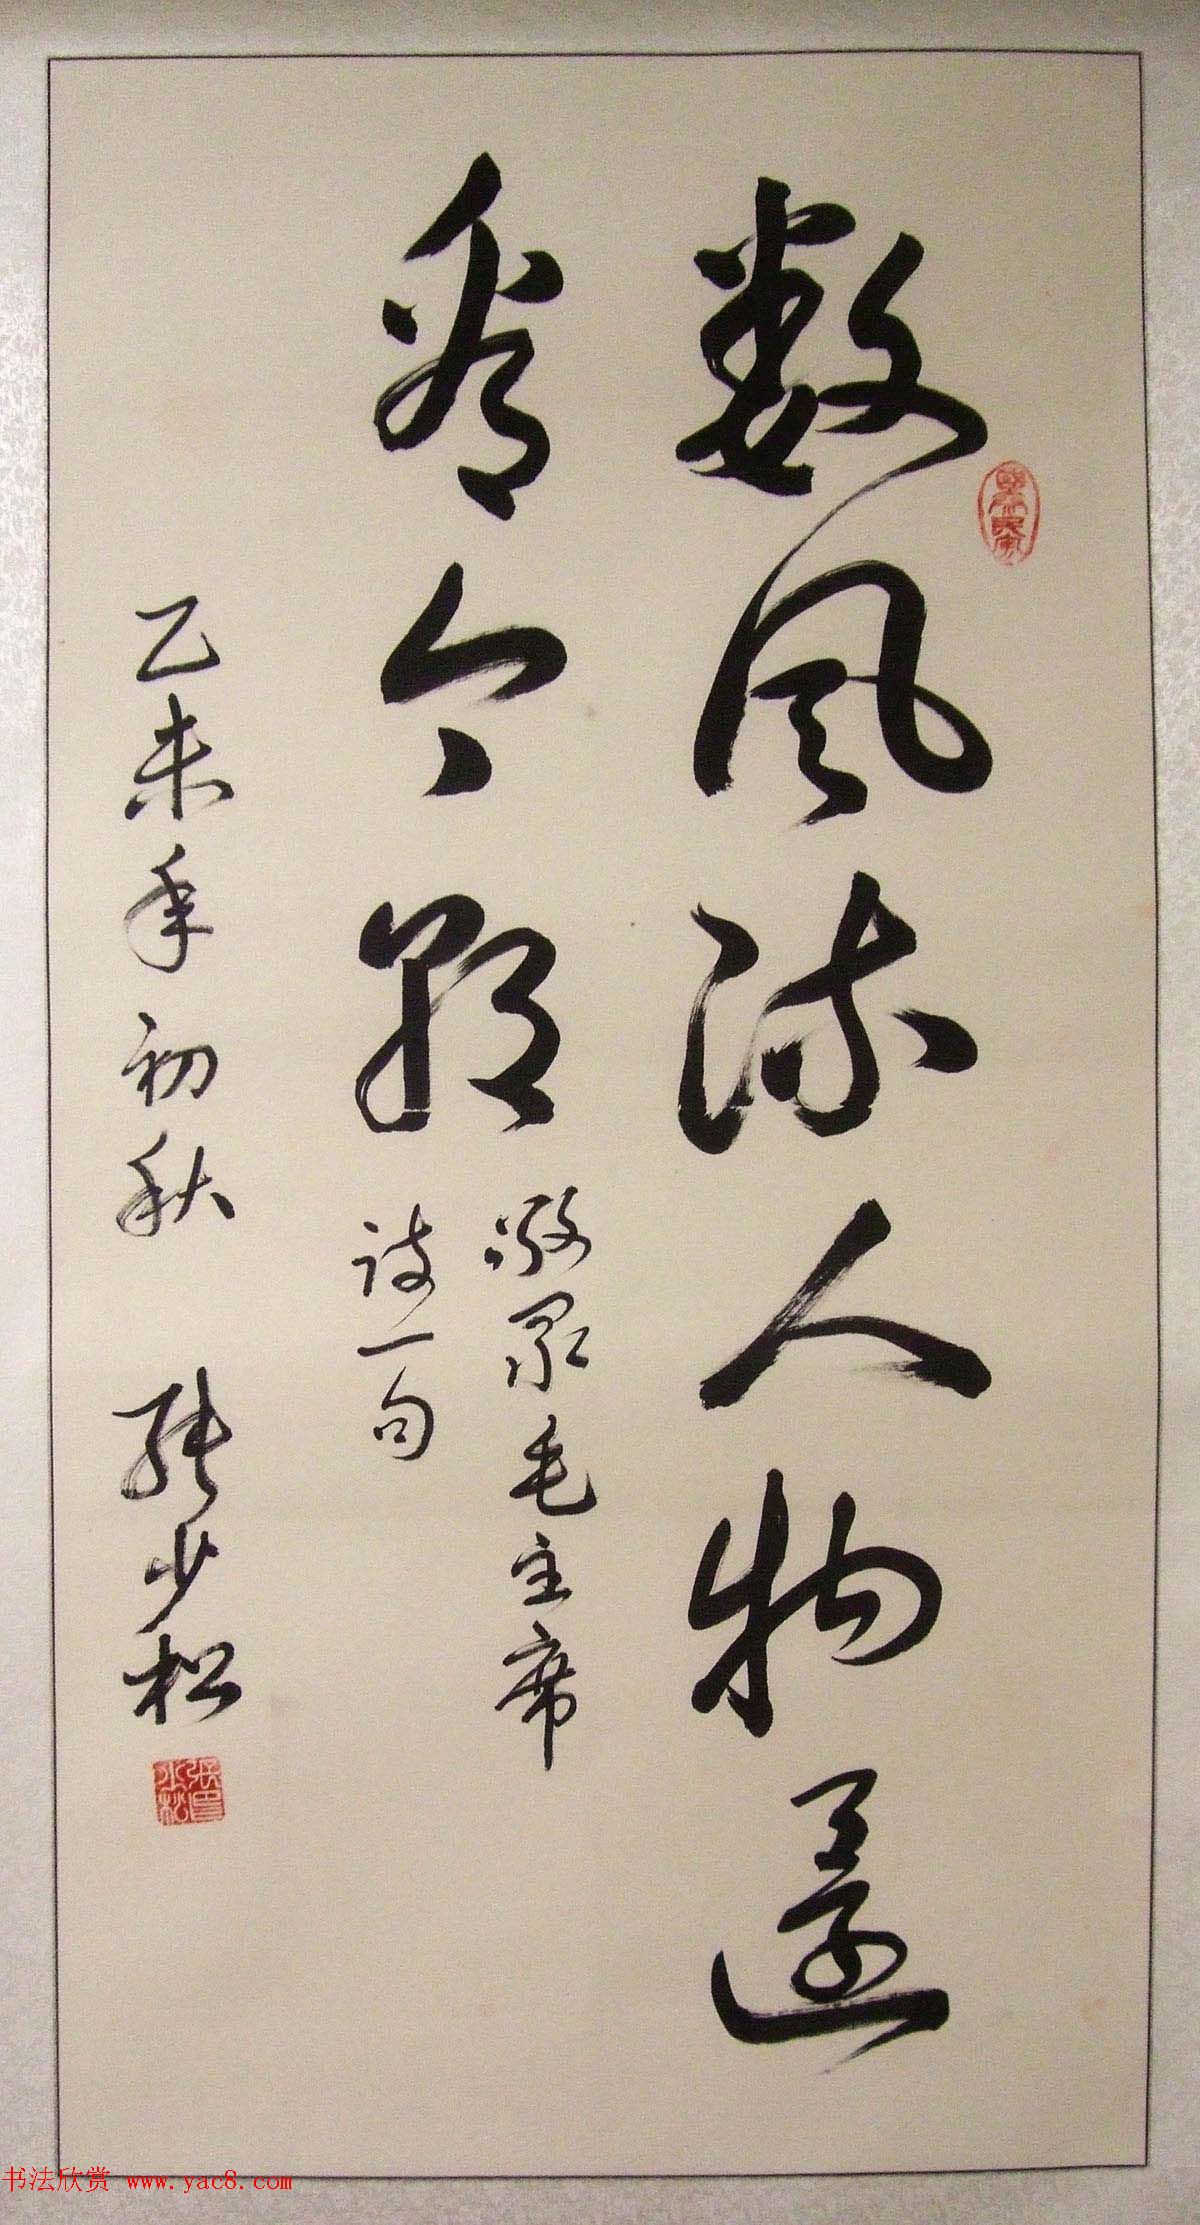 数风流人物还
看今朝
敬录毛主席
诗一句
乙未年初秋 张少松
张少松印
书法欣赏 www.yac8.com